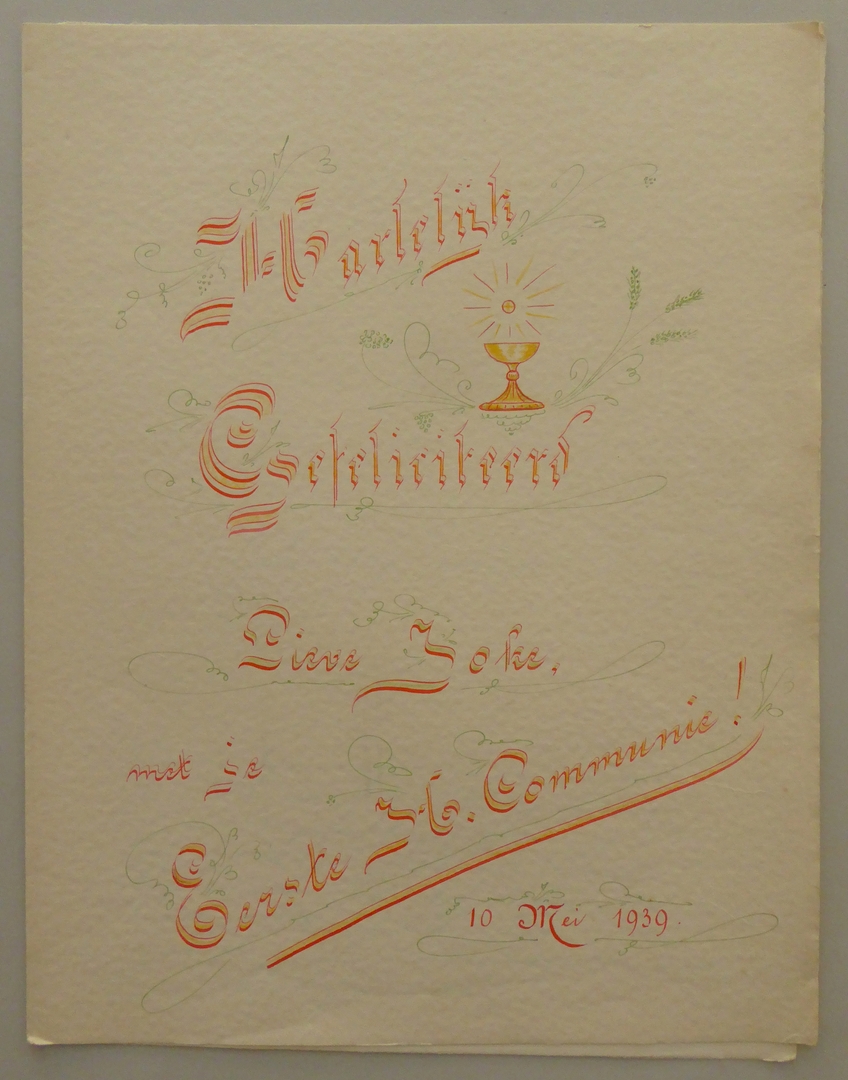 Hartelijk
Gefeliciteerd
Lieve Joke,
met je
Eerste H. Communie!
10 Mei 1939.